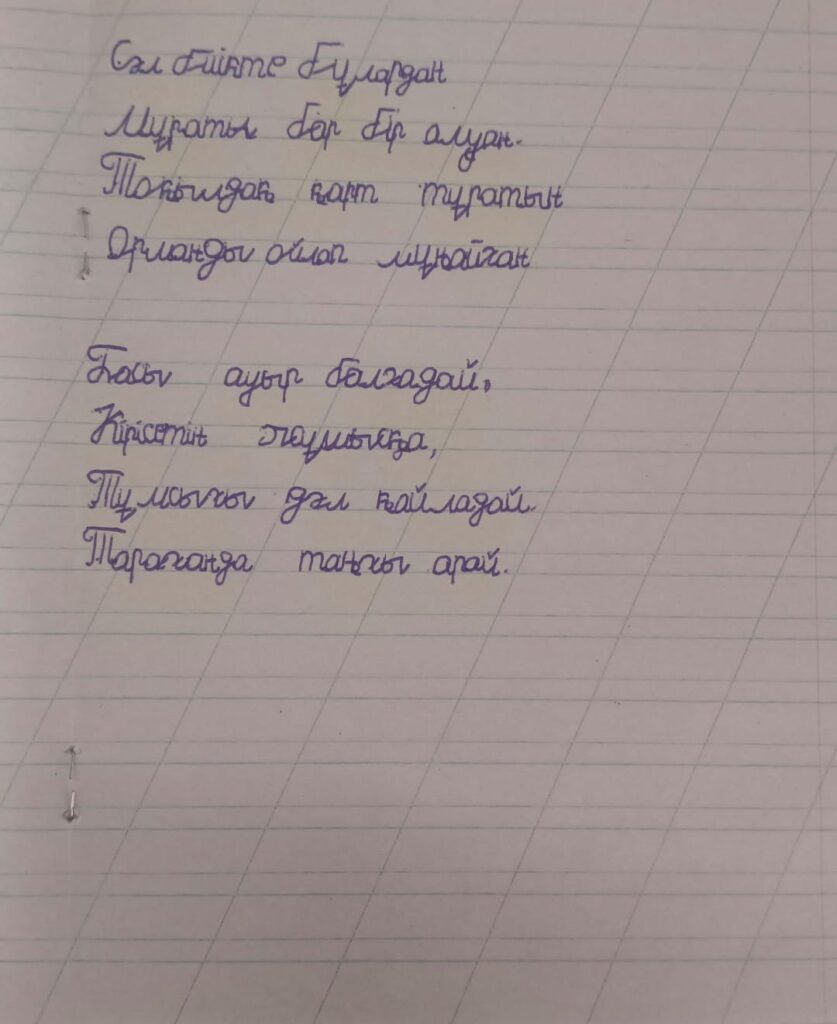 Сәл биікте бұлардан
Мұраты бар бір алуан.
Тоқылдақ қарт тұратын
Орманды ойлап мұңайған
Басы ауыр балғадай,
Кірісетін жұмысқа,
Тұмсығы дәл қайладай.
Тарағанда таңғы арай.